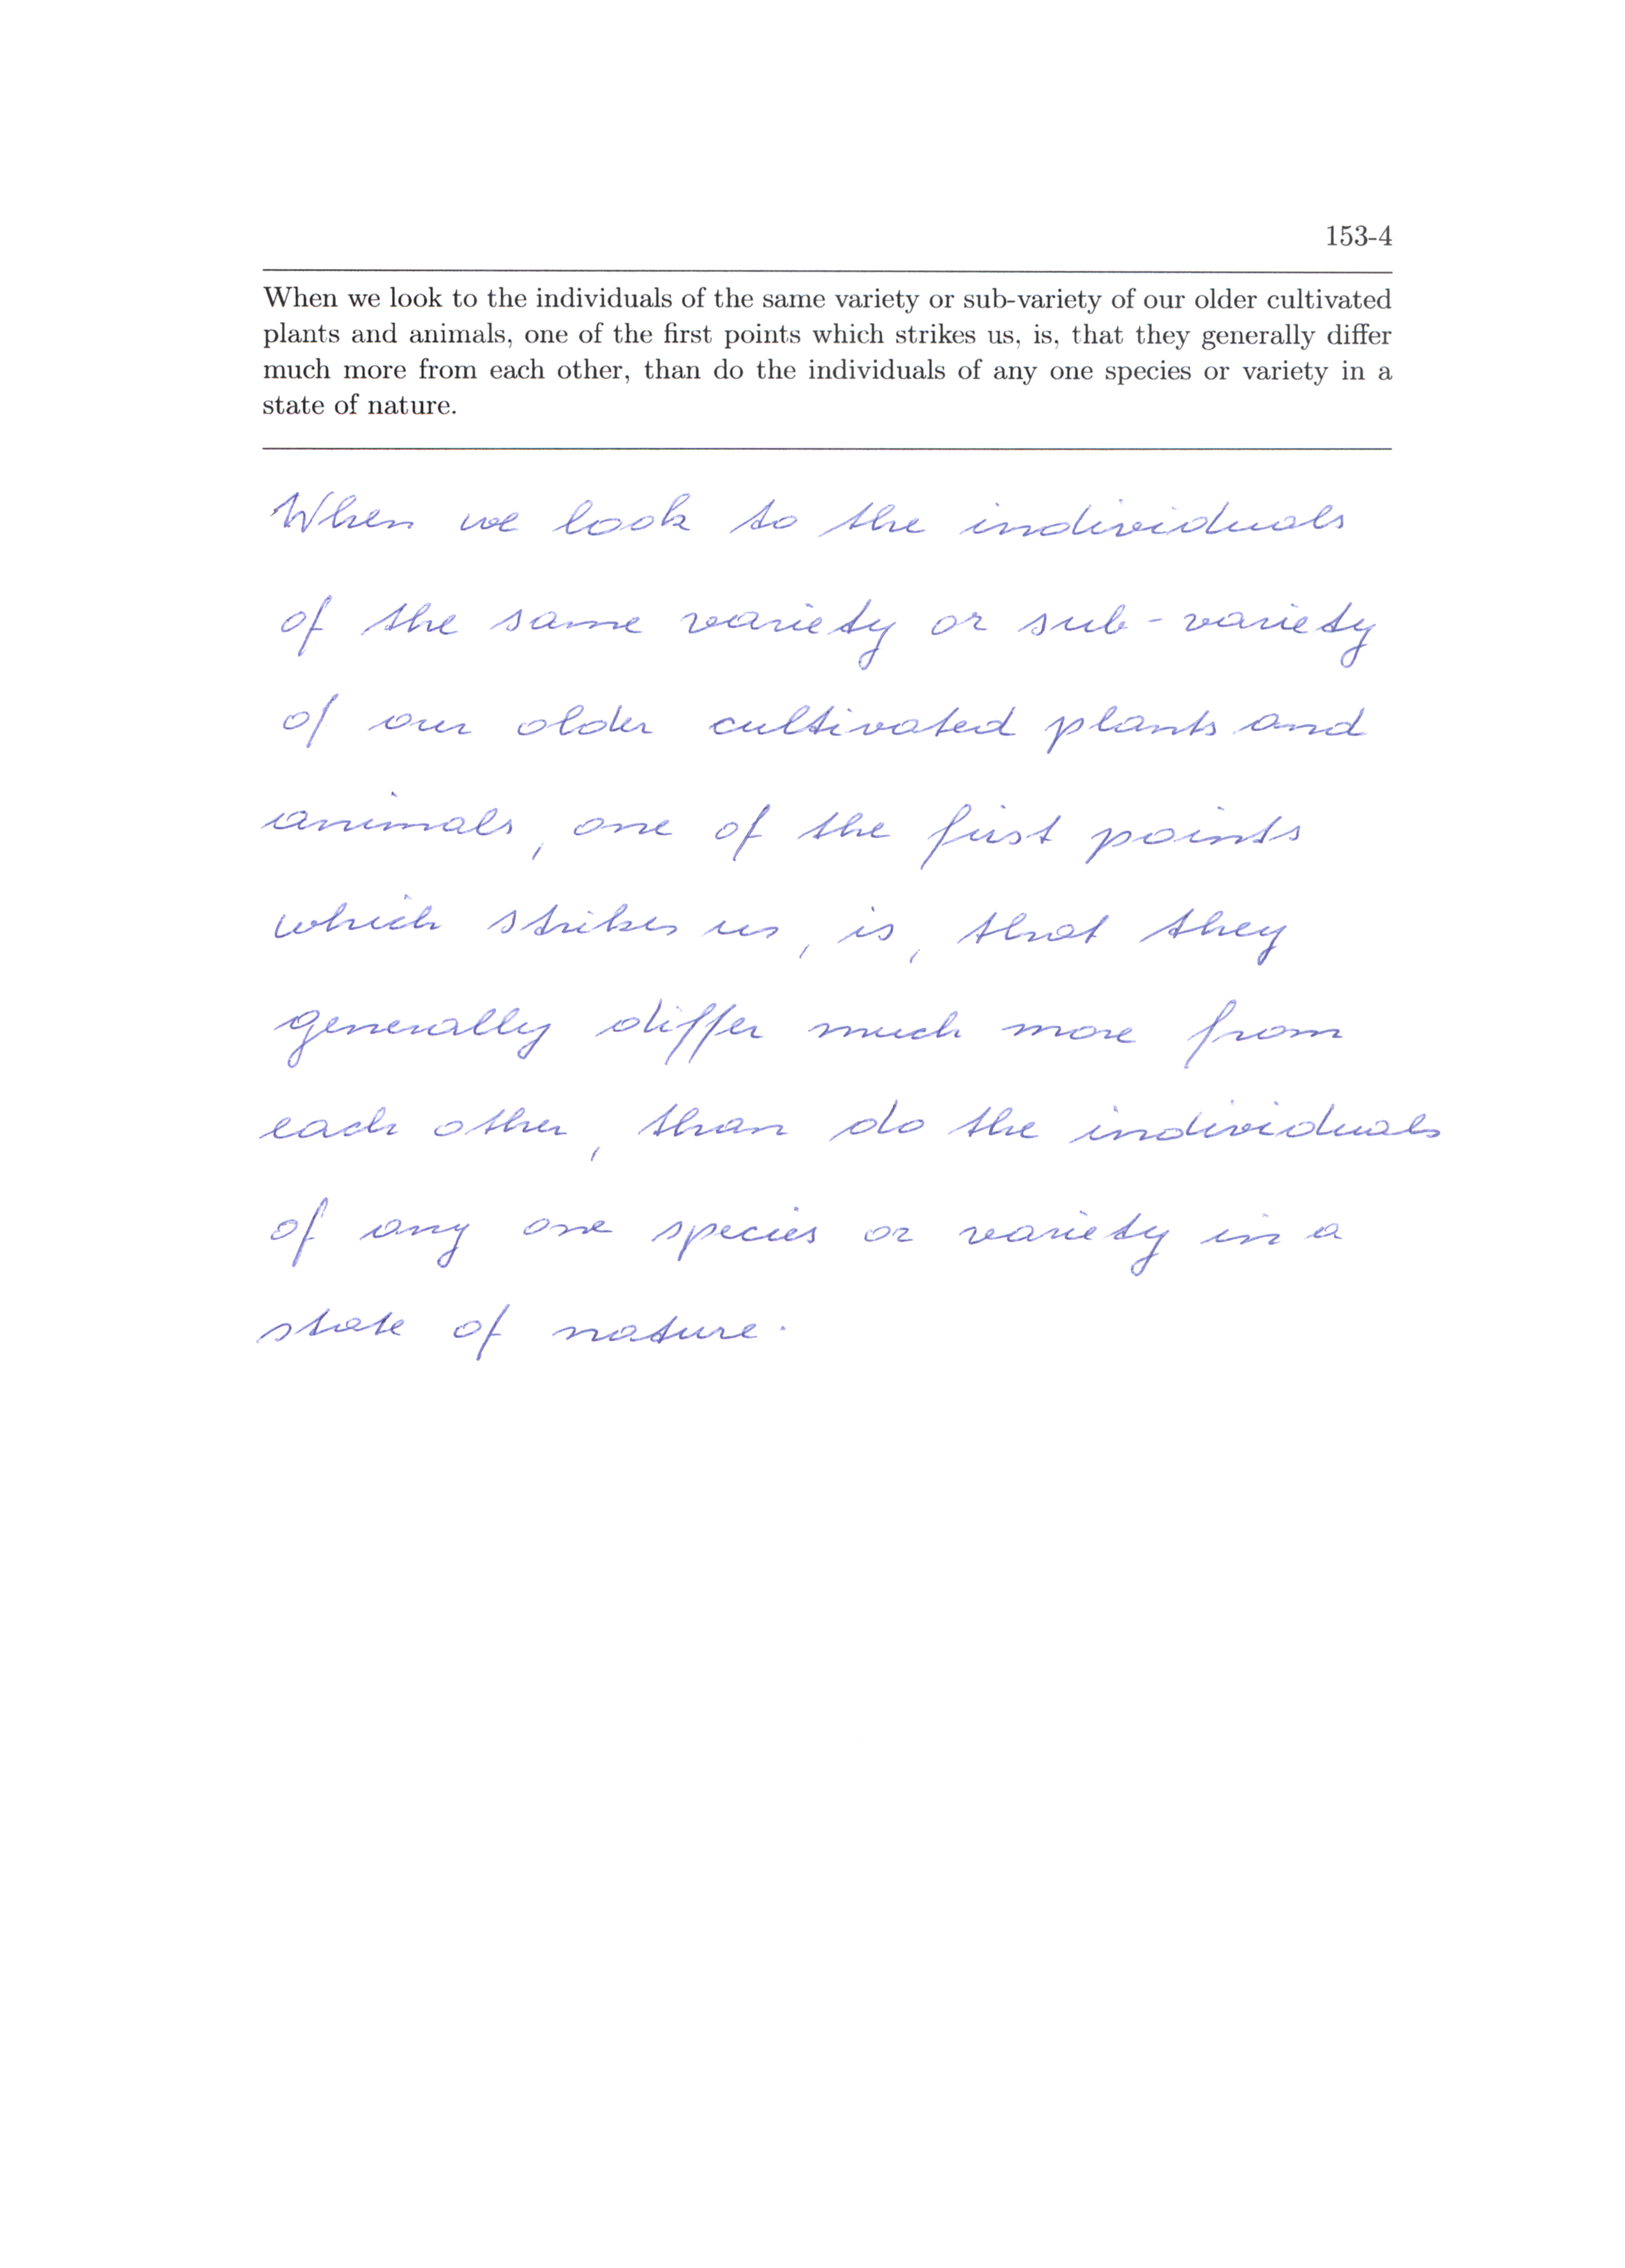 153-4
When we look to the individuals of the same variety or sub-variety of our older cultivated
plants and animals, one of the first points which strikes us, is, that they generally differ
much more from each other, than do the individuals of any one species or variety in a
state of nature.
When we look to the individuals
of the same variety or sub-variety
of our older cultivated plants and
animals, one of the first points
which strikes us, is, that they
generally differ much more from
each other, than do the individuals
of any one species or variety in a
state of nature.